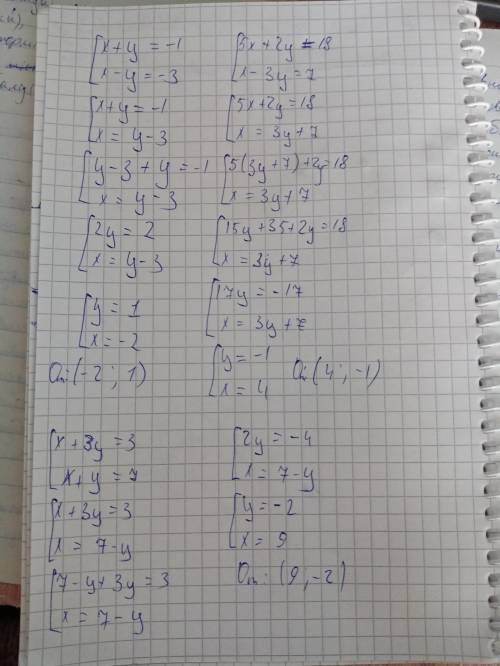 x+y=-1
x-y=-3
x+y=-1
x=y-3
y-3+y=-1
x=y-3
2y=2
x=y-3
y=1
x=-2
От:(-2; 1)
5x+2y=18
x-3y=7
5x+2y=18
x=3y+7
5(3y+7)+2y=18
x=3y+7
15y+35+2y=18
x=3y+7
17y=-17
x=3y+7
y=-1
x=4
От:(4; -1)
x+3y=3
x+y=7
x+3y=3
x=7-y
7-y+3y=3
x=7-y
2y=-4
x=7-y
y=-2
x=9
От: (9,-2)